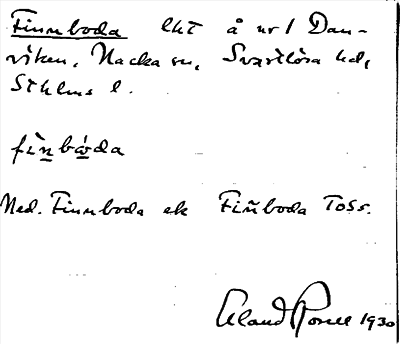 Finnboda lht å nr 1 Dan-
viken, Nacka sn, Svartlösa hd,
Sthlms l.
fìnbὼda
Ned. Finnboda ek Fin̄boda Toss.
1930